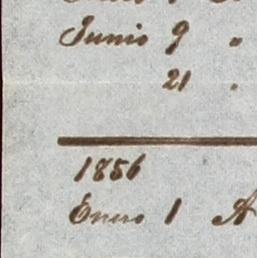 Junio 9 "
21 "
1856
Enero 1 A